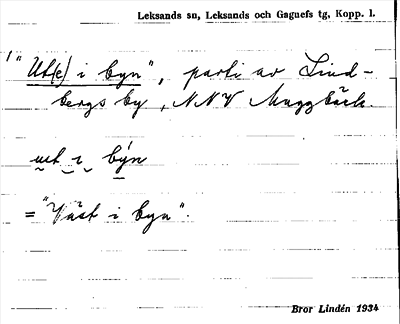 Leksands sn, Leksands och Gagnefs tg, Kopp. l.
1 "Ut(e) i byn", parti av Lind-
bergs by, NNV Muggbäck.
ut i by̍n
= "Väst i byn".
Bror Lindén 1934